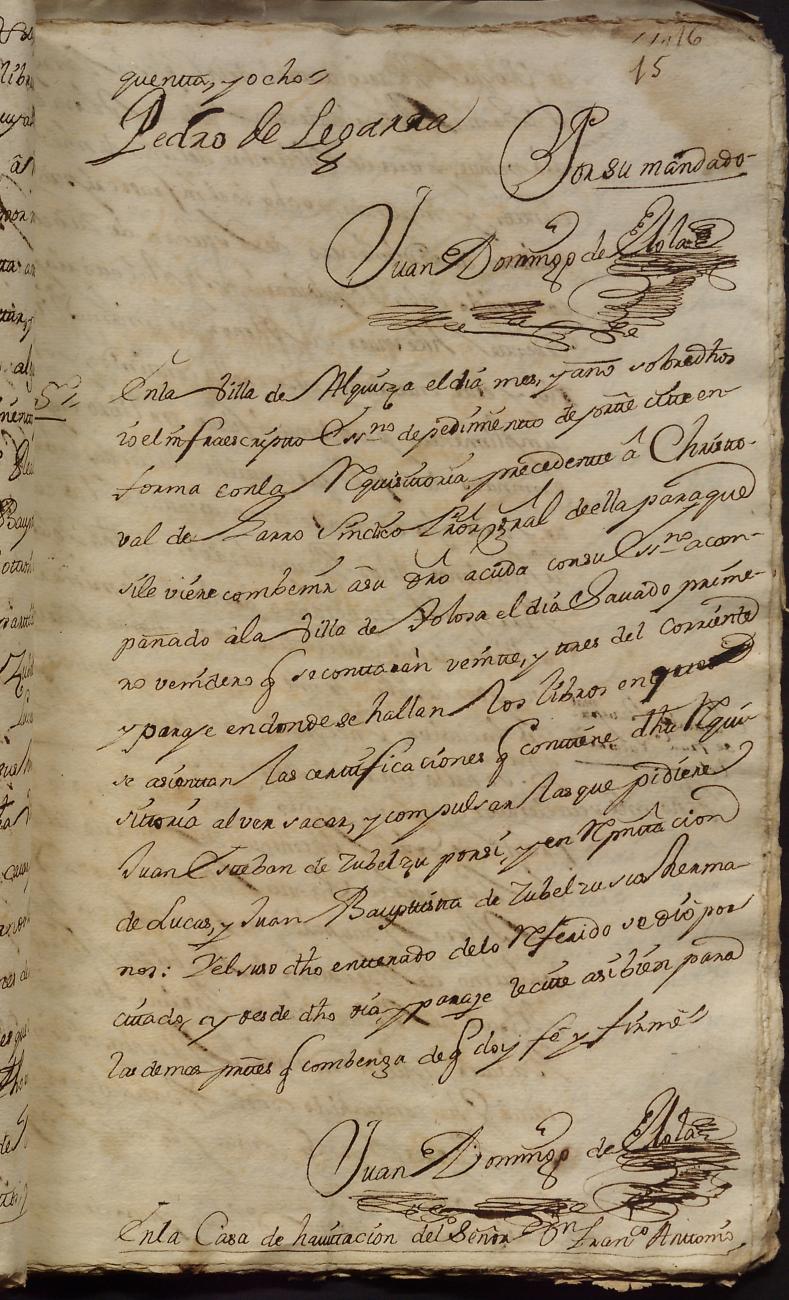 15
quentta, y ocho=
Pedro de Legarra
Por su mandado
Juan Domingo de Elola
En la Villa de Alquiza el dia mes, y año sobredhos
io el infraescriptto Essno de pedimentto de partte citte en
forma con la Requisittoria precedentte â Christto-
val de Larre Sindico Prôr gral de ella para que
si le viere combenir â su drô acuda con su Essno acom-
pañado âla Villa de Tolosa el dia Savado prime-
ro venidero q se conttaràn veintte, y ttres del corriente
y paraje en donde se hallan los libros en que
se asienttan las certtificaciones q conttiene dha Requi-
sittoria al ver sacar, y compulsar las que pidiere
Juan Estteban de Zubelzu por si, y en Rpnttacion
de Lucas, y Juan Baupttistta de Zubelzu sus herma-
nos: Y el suso dho entterado delo Referido se diò por
cittado, y desde dho dia, y paraje le citte asi bien para
las demas parttes q combenga de q doy feê y firmè=
Juan Domingo de Elola
En la Casa de havittacion del Señor Dn Franco Anttonio